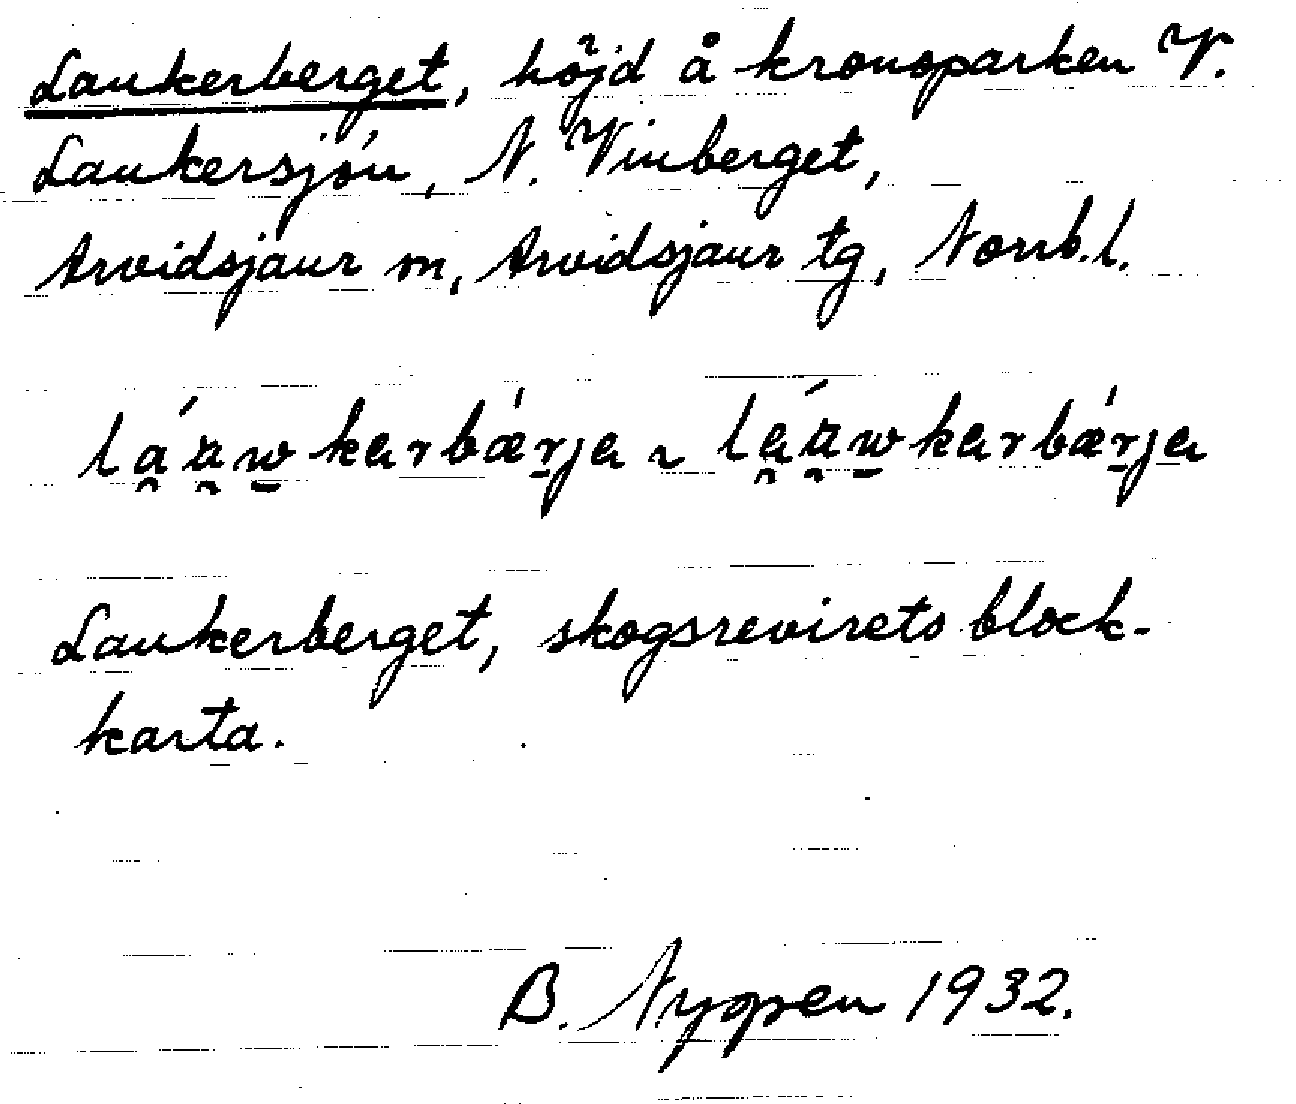 Laukerberget, höjd å kronoparken V.
Laukersjön, N. Vinberget,
Arvidsjaur m, Arvidsjaur tg, Norrb.l.
Laukerberget, skogsrevirets block-
karta.
B. Nygren 1932.